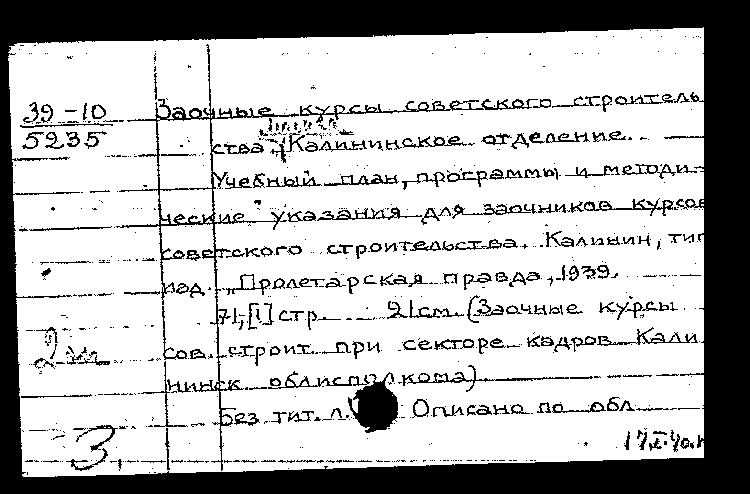 39-10
5235
Заочные курсы советского строитель
ства. Калининское отделение.
Учебный план, программы и методи-
ческие указания для заочников курсов
советского строительства. Калинин, тип
изд. „Пролетарская правда, 1939.
71,[1] стр. 21 см. (Заочные курсы
сов. строит. при секторе кадров Кали
нинск. облисполкома)
Без тит. л. Описано по обл.
3.
17.I.40.